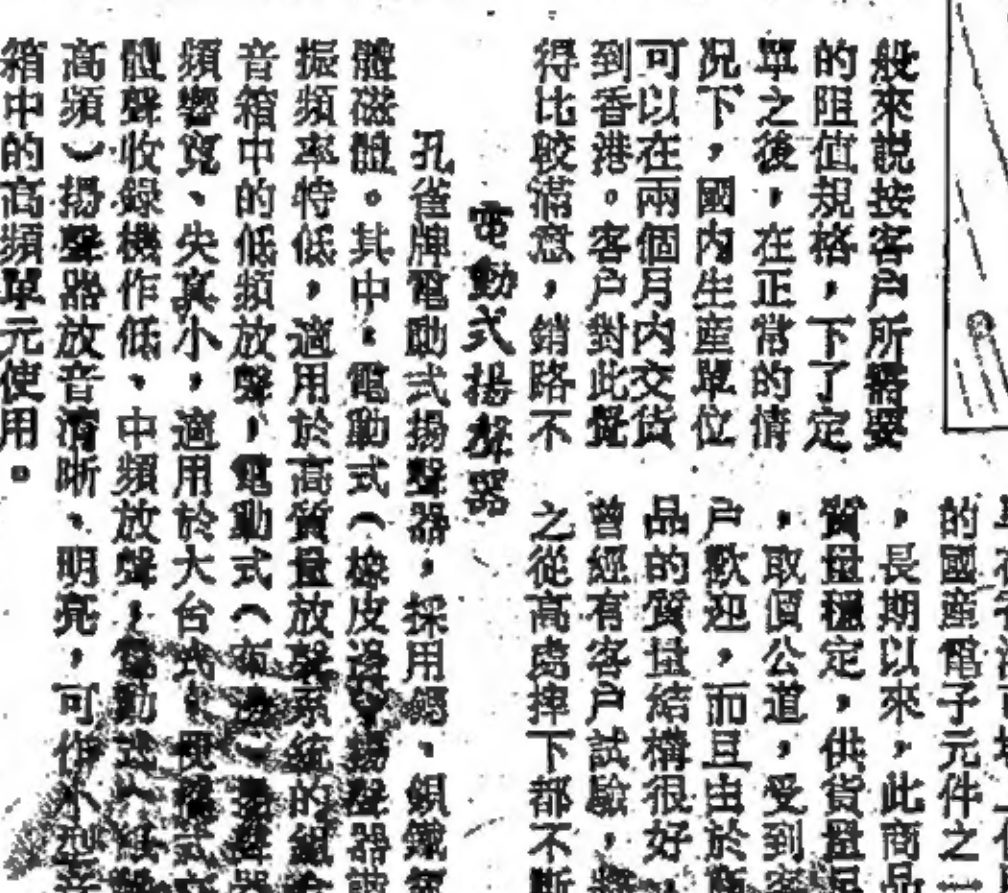 般來説按客户所需要
的阻值規格，下了定
單之後，在正常的情
况下，國内生産單位
可以在兩個月内交貨
到香港。客户對此覺
得比較滿意，銷路不
的國産電子元件之一
，長期以來，此商品
質量穩定，供貨量
，取價公道，受到客
户歡迎，而且由於
品的質量結構很好
曾經有客户試驗，
之從高處摔下都不斷
電動式揚聲器
孔雀牌電動式揚聲器，採用鍶、鋇鐵氧
體磁體。其中：電動式（橡皮邊）揚聲器諧
振頻率特低，適用於高質量放聲系統的組合
音箱中的低頻放聲，電動式（布邊）揚聲器
頻響寬、失真小，適用於大台式、便攜式立
體聲收録機作低、中頻放聲，電動式（紙
高頻）揚聲器放音清晰、明亮，可作小型音
箱中的高頻單元使用。